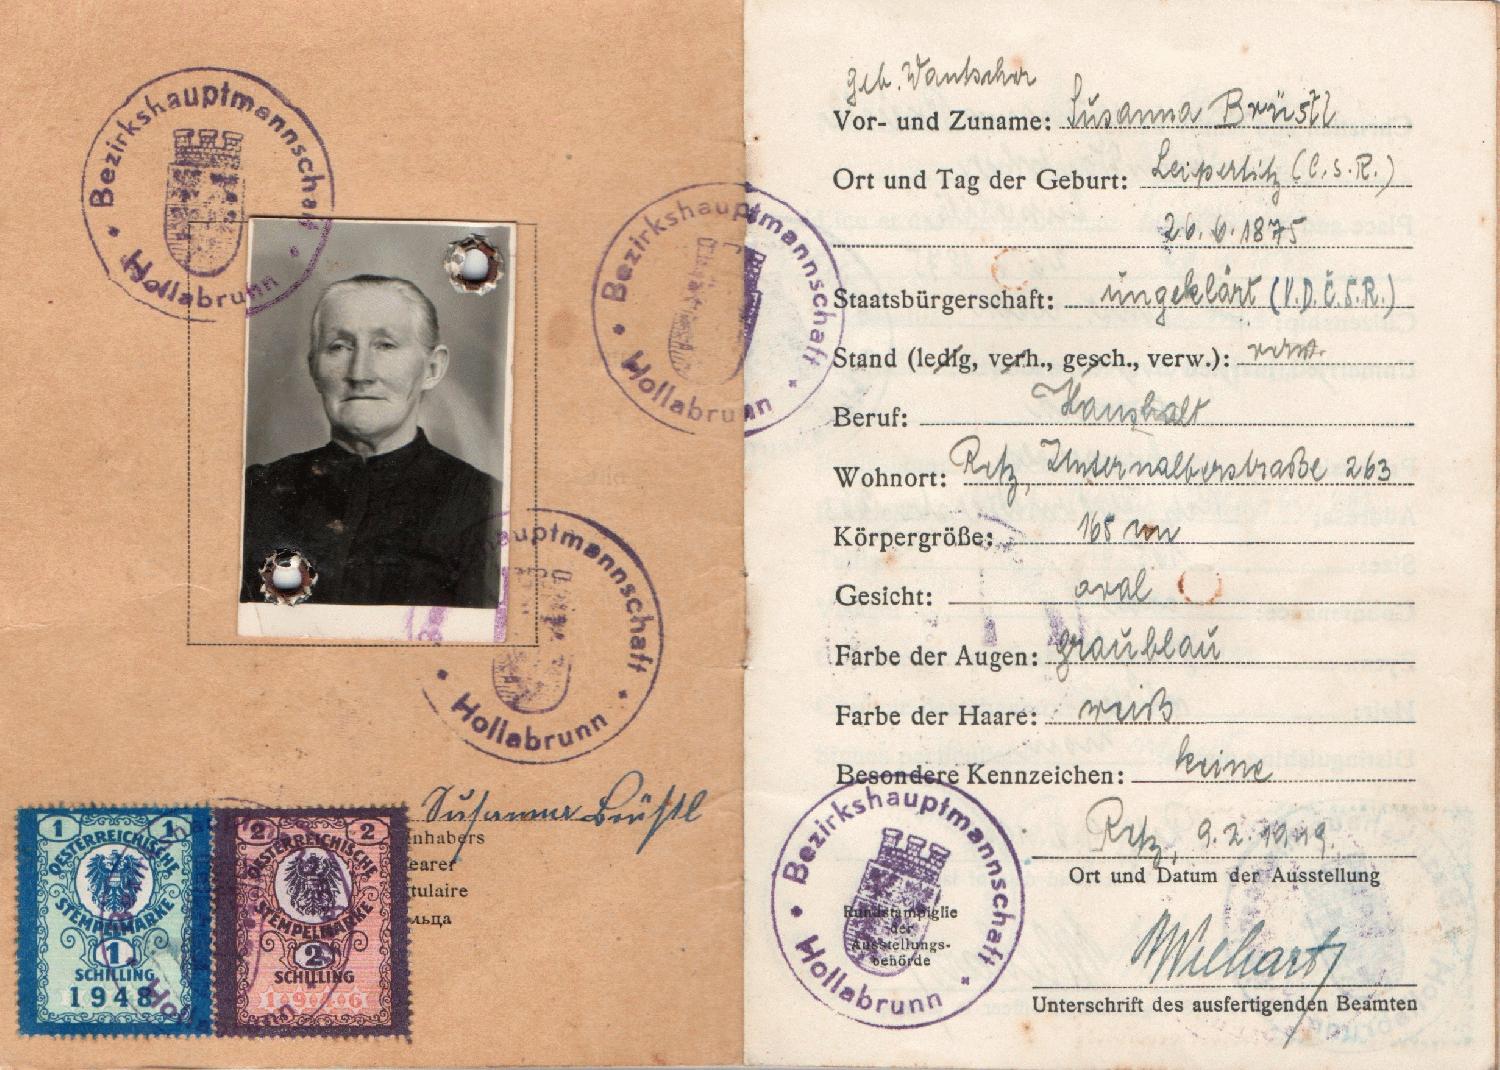 Bezirkshauptmannschaft
Hollabrunn
Bezirkshauptmannschaft
Hollabrunn
hauptmannschaft
Hollabrunn
Susanna Brüstl
nhabers
earer
tulaire
льца
1 1
OESTERREICHISCHE
STEMPELMARKE
1
SCHILLING
1948
2 2
OESTERREICHISCHE
STEMPELMARKE
2
SCHILLING
1946
geb.
Vor- und Zuname: Susanna Brüstl
Ort und Tag der Geburt: Leipertitz (C.S.R.)
26.6.1875
Staatsbürgerschaft: ungeklärt (V.D.Č.S.R.)
Stand (ledig, verh., gesch., verw.): verw.
Beruf: Haushalt
Wohnort: Retz, Unternalberstraße 263
Körpergröße: 165 cm
Gesicht: oval
Farbe der Augen: graublau
Farbe der Haare: weiß
Besondere Kennzeichen: keine
Retz, 9.2.1949.
Ort und Datum der Ausstellung
Bezirkshauptmannschaft
Rundstampiglie
der
Ausstellungs-
behörde
Hollabrunn
Unterschrift des ausfertigenden Beamten